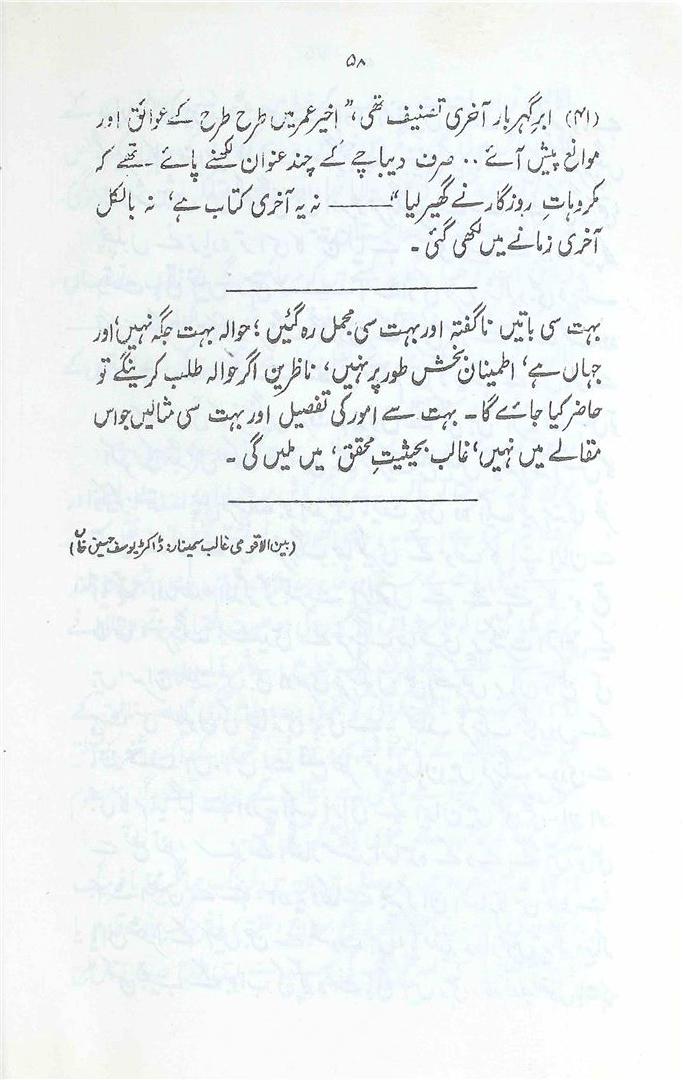 ۵۸
(۴۱) ابرِ گہر بار آخری تصنیف تھی، "اخیر عمر میں طرح طرح کے عوائق اور
موانع پیش آئے .. صرف دیباچے کے چند عنوان لکھنے پائے ۔ تھے کہ
مکروہاتِ روزگار نے گھیر لیا" ــــــ نہ یہ آخری کتاب ہے، نہ بالکل
آخری زمانے میں لکھی گئی ۔
بہت سی باتیں ناگفتہ اور بہت سی مجمل رہ گئیں؛ حوالہ بہت جگہ نہیں، اور
جہاں ہے، اطمینان بخش طور پر نہیں، ناظرین اگر حوالہ طلب کرینگے تو
حاضر کیا جائے گا۔ بہت سے امور کی تفصیل اور بہت سی مثالیں جو اس
مقالے میں نہیں، غالب بحیثیتِ محقق، میں ملیں گی ۔
(بین الاقومی غالب سیمینار۔ ڈاکٹر یوسف حسین خاں)